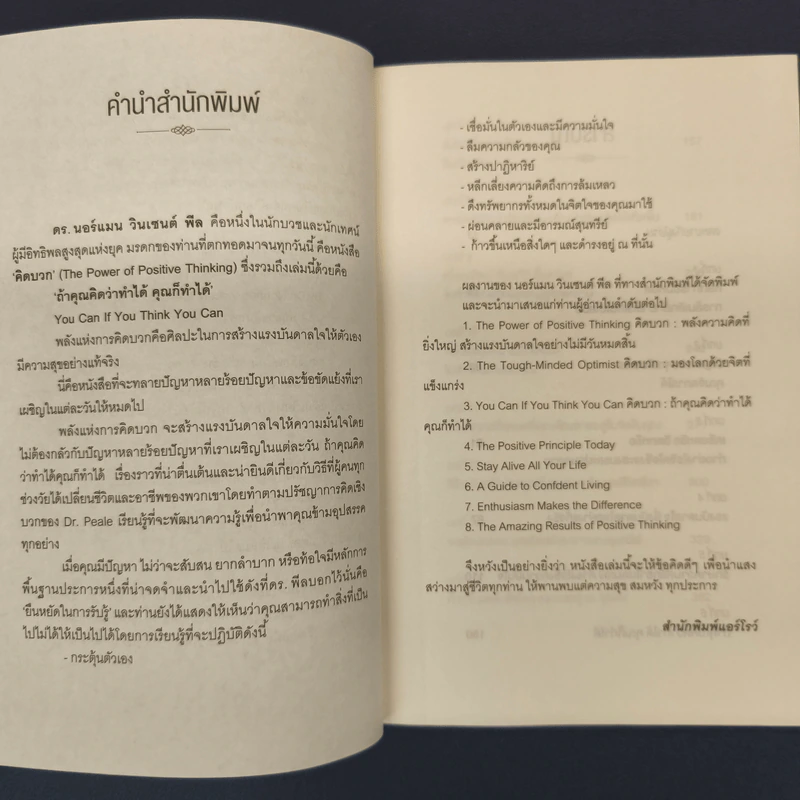 คำนำสำนักพิมพ์
ดร. นอร์แมน วินเซนต์ พีล คือหนึ่งในนักบวชและนักเทศน์
ผู้มีอิทธิพลสูงสุดแห่งยุค มรดกของท่านที่ตกทอดมาจนทุกวันนี้ คือหนังสือ
'คิดบวก' (The Power of Positive Thinking) ซึ่งรวมถึงเล่มนี้ด้วยคือ
'ถ้าคุณคิดว่าทำได้ คุณก็ทำได้'
You Can If You Think You Can
พลังแห่งการคิดบวกคือศิลปะในการสร้างแรงบันดาลใจให้ตัวเอง
มีความสุขอย่างแท้จริง
นี่คือหนังสือที่จะทลายปัญหาหลายร้อยปัญหาและข้อขัดแย้งที่เรา
เผชิญในแต่ละวันให้หมดไป
พลังแห่งการคิดบวก จะสร้างแรงบันดาลใจให้ความมั่นใจโดย
ไม่ต้องกลัวกับปัญหาหลายร้อยปัญหาที่เราเผชิญในแต่ละวัน ถ้าคุณคิด
ว่าทำได้คุณก็ทำได้ เรื่องราวที่น่าตื่นเต้นและน่ายินดีเกี่ยวกับวิธีที่ผู้คนทุก
ช่วงวัยได้เปลี่ยนชีวิตและอาชีพของพวกเขาโดยทำตามปรัชญาการคิดเชิง
บวกของ Dr. Peale เรียนรู้ที่จะพัฒนาความรู้เพื่อนำพาคุณข้ามอุปสรรค
ทุกอย่าง
เมื่อคุณมีปัญหา ไม่ว่าจะสับสน ยากลำบาก หรือท้อใจมีหลักการ
พื้นฐานประการหนึ่งที่น่าจดจำและนำไปใช้ดังที่ดร. พีลบอกไว้นั่นคือ
'ยืนหยัดในการรับรู้' และท่านยังได้แสดงให้เห็นว่าคุณสามารถทำสิ่งที่เป็น
ไปไม่ได้ให้เป็นไปได้โดยการเรียนรู้ที่จะปฏิบัติดังนี้
- กระตุ้นตัวเอง
- เชื่อมั่นในตัวเองและมีความมั่นใจ
- ลืมความกลัวของคุณ
- สร้างปาฏิหาริย์
- หลีกเลี่ยงความคิดถึงการล้มเหลว
- ดึงทรัพยากรทั้งหมดในจิตใจของคุณมาใช้
- ผ่อนคลายและมีอารมณ์สุนทรีย์
- ก้าวขึ้นเหนือสิ่งใดๆ และดำรงอยู่ ณ ที่นั้น
ผลงานของ นอร์แมน วินเซนต์ พีล ที่ทางสำนักพิมพ์ได้จัดพิมพ์
และจะนำมาเสนอแก่ท่านผู้อ่านในลำดับต่อไป
1. The Power of Positive Thinking คิดบวก : พลังความคิดที่
ยิ่งใหญ่ สร้างแรงบันดาลใจอย่างไม่มีวันหมดสิ้น
2. The Tough-Minded Optimist คิดบวก : มองโลกด้วยจิตที่
แข็งแกร่ง
3. You Can If You Think You Can คิดบวก : ถ้าคุณคิดว่าทำได้
คุณก็ทำได้
4. The Positive Principle Today
5. Stay Alive All Your Life
6. A Guide to Confdent Living
7. Enthusiasm Makes the Difference
8. The Amazing Results of Positive Thinking
จึงหวังเป็นอย่างยิ่งว่า หนังสือเล่มนี้จะให้ข้อคิดดีๆ เพื่อนำแสง
สว่างมาสู่ชีวิตทุกท่าน ให้พานพบแต่ความสุข สมหวัง ทุกประการ
สำนักพิมพ์แอร์โรว์